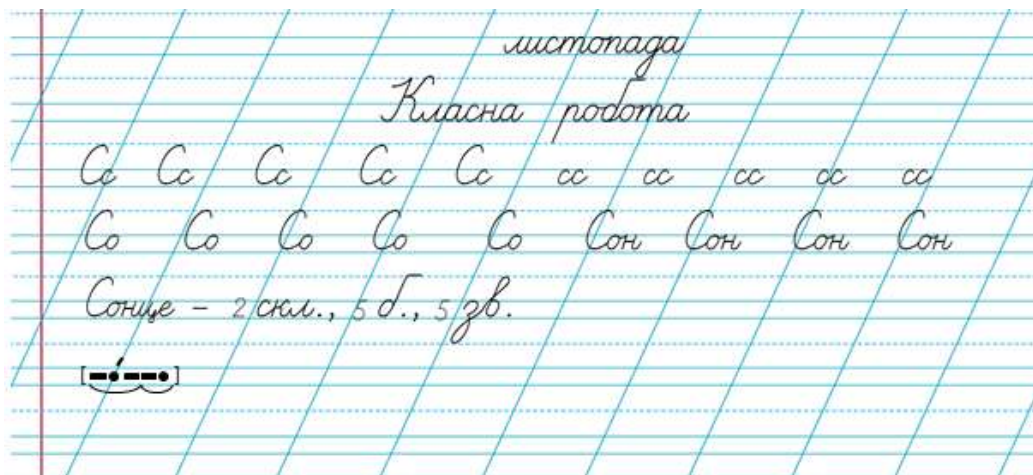 листопада
Класна робота
Сс Сс Сс Сс Сс сс сс сс сс сс
Со Со Со Со Со Сон Сон Сон Сон
Сонце – 2 скл., 5 б., 5 зв.